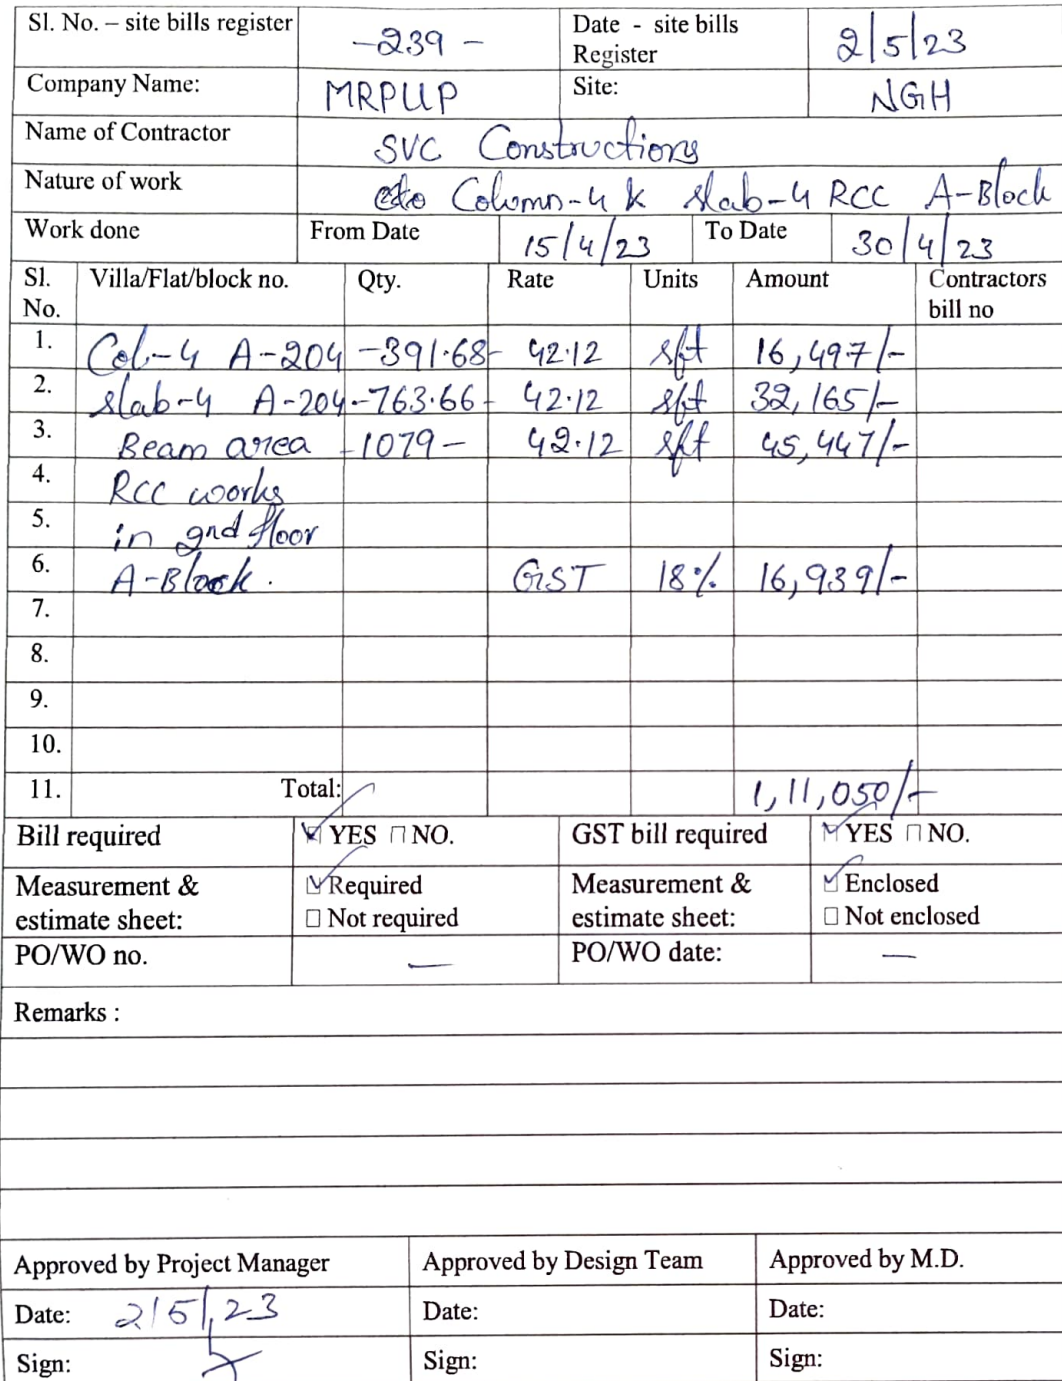 Sl. No. – site bills register -239- Date - site bills Register 2/5/23
Company Name: MRPUP Site: NGH
Name of Contractor SVC Constructions
Nature of work Column-4 & slab-4 RCC A-Block
Work done From Date 15/4/23 To Date 30/4/23
Sl. No. Villa/Flat/block no. Qty. Rate Units Amount Contractors bill no
1. Col-4 A-204 -391.68- 42.12 sft 16,497/-
2. slab-4 A-204 -763.66- 42.12 sft 32,165/-
3. Beam area -1079- 42.12 sft 45,447/-
4. RCC works
5. in 2nd floor
6. A-Block. GST 18% 16,939/-
7.
8.
9.
10.
11. Total: 1,11,050/-
Bill required ☑ YES □ NO. GST bill required ☑ YES □ NO.
Measurement & estimate sheet: ☑ Required □ Not required Measurement & estimate sheet: ☑ Enclosed □ Not enclosed
PO/WO no. — PO/WO date: —
Remarks :
Approved by Project Manager Approved by Design Team Approved by M.D.
Date: 2/5/23 Date: Date:
Sign: Sign: Sign: